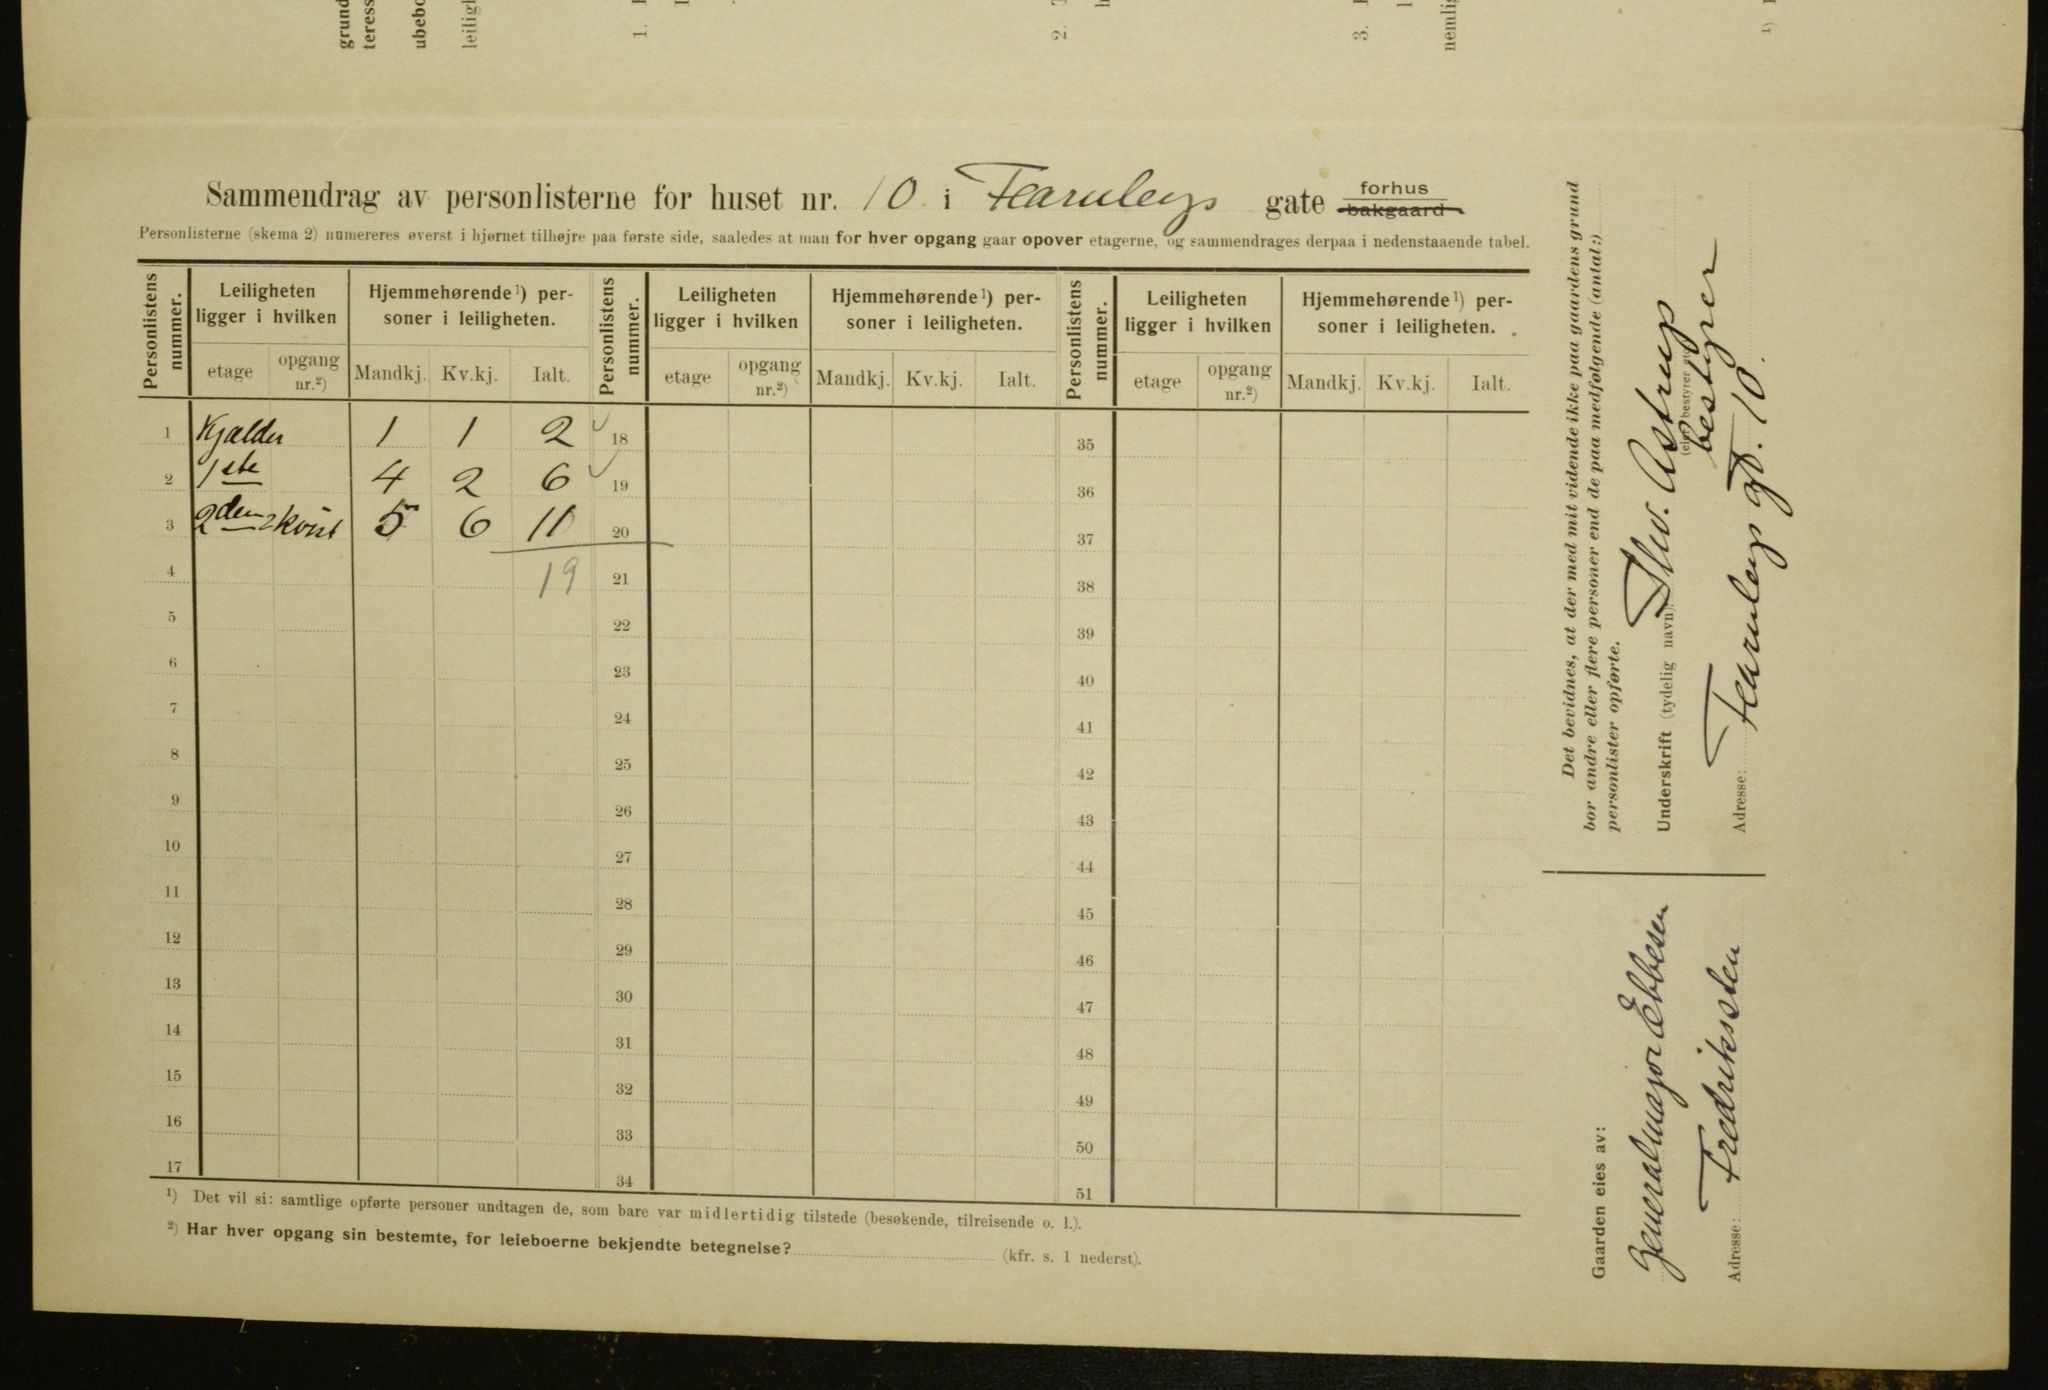 grund
teress
ubebo
leiligh
1.
2.
3.
nemlig
1)
Sammendrag av personlisterne for huset nr. 10 i Fearnleys gate forhus
bakgaard
Personlisterne (skema 2) numereres øverst i hjørnet tilhøjre paa første side, saaledes at man for hver opgang gaar opover etagerne, og sammendrages derpaa i nedenstaaende tabel.
Personlistens nummer. Leiligheten ligger i hvilken Hjemmehørende 1) personer i leiligheten. Personlistens nummer. Leiligheten ligger i hvilken Hjemmehørende 1) personer i leiligheten. Personlistens nummer. Leiligheten ligger i hvilken Hjemmehørende 1) personer i leiligheten.
etage opgang nr.2) Mandkj. Kv.kj. Ialt. etage opgang nr.2) Mandkj. Kv.kj. Ialt. etage opgang nr.2) Mandkj. Kv.kj. Ialt.
1 Kjælder 1 1 2 18 35
2 1ste 4 2 6 19 36
3 2den 2 kvist 5 6 11 20 37
4 19 21 38
5 22 39
6 23 40
7 24 41
8 25 42
9 26 43
10 27 44
11 28 45
12 29 46
13 30 47
14 31 48
15 32 49
16 33 50
17 34 51
1) Det vil si: samtlige opførte personer undtagen de, som bare var midlertidig tilstede (besøkende, tilreisende o. l.).
2) Har hver opgang sin bestemte, for leieboerne bekjendte betegnelse? (kfr. s. 1 nederst).
Det bevidnes, at der med mit vidende ikke paa gaardens grund
bor andre eller flere personer end de paa medfølgende (antal:)
personlister opførte.
Underskrift (tydelig navn): Thv. Astrup
bestyrer
Adresse: Fearnleys gt. 10
Gaarden eies av:
Generalmajor Ebbesen
Adresse: Fredriksten